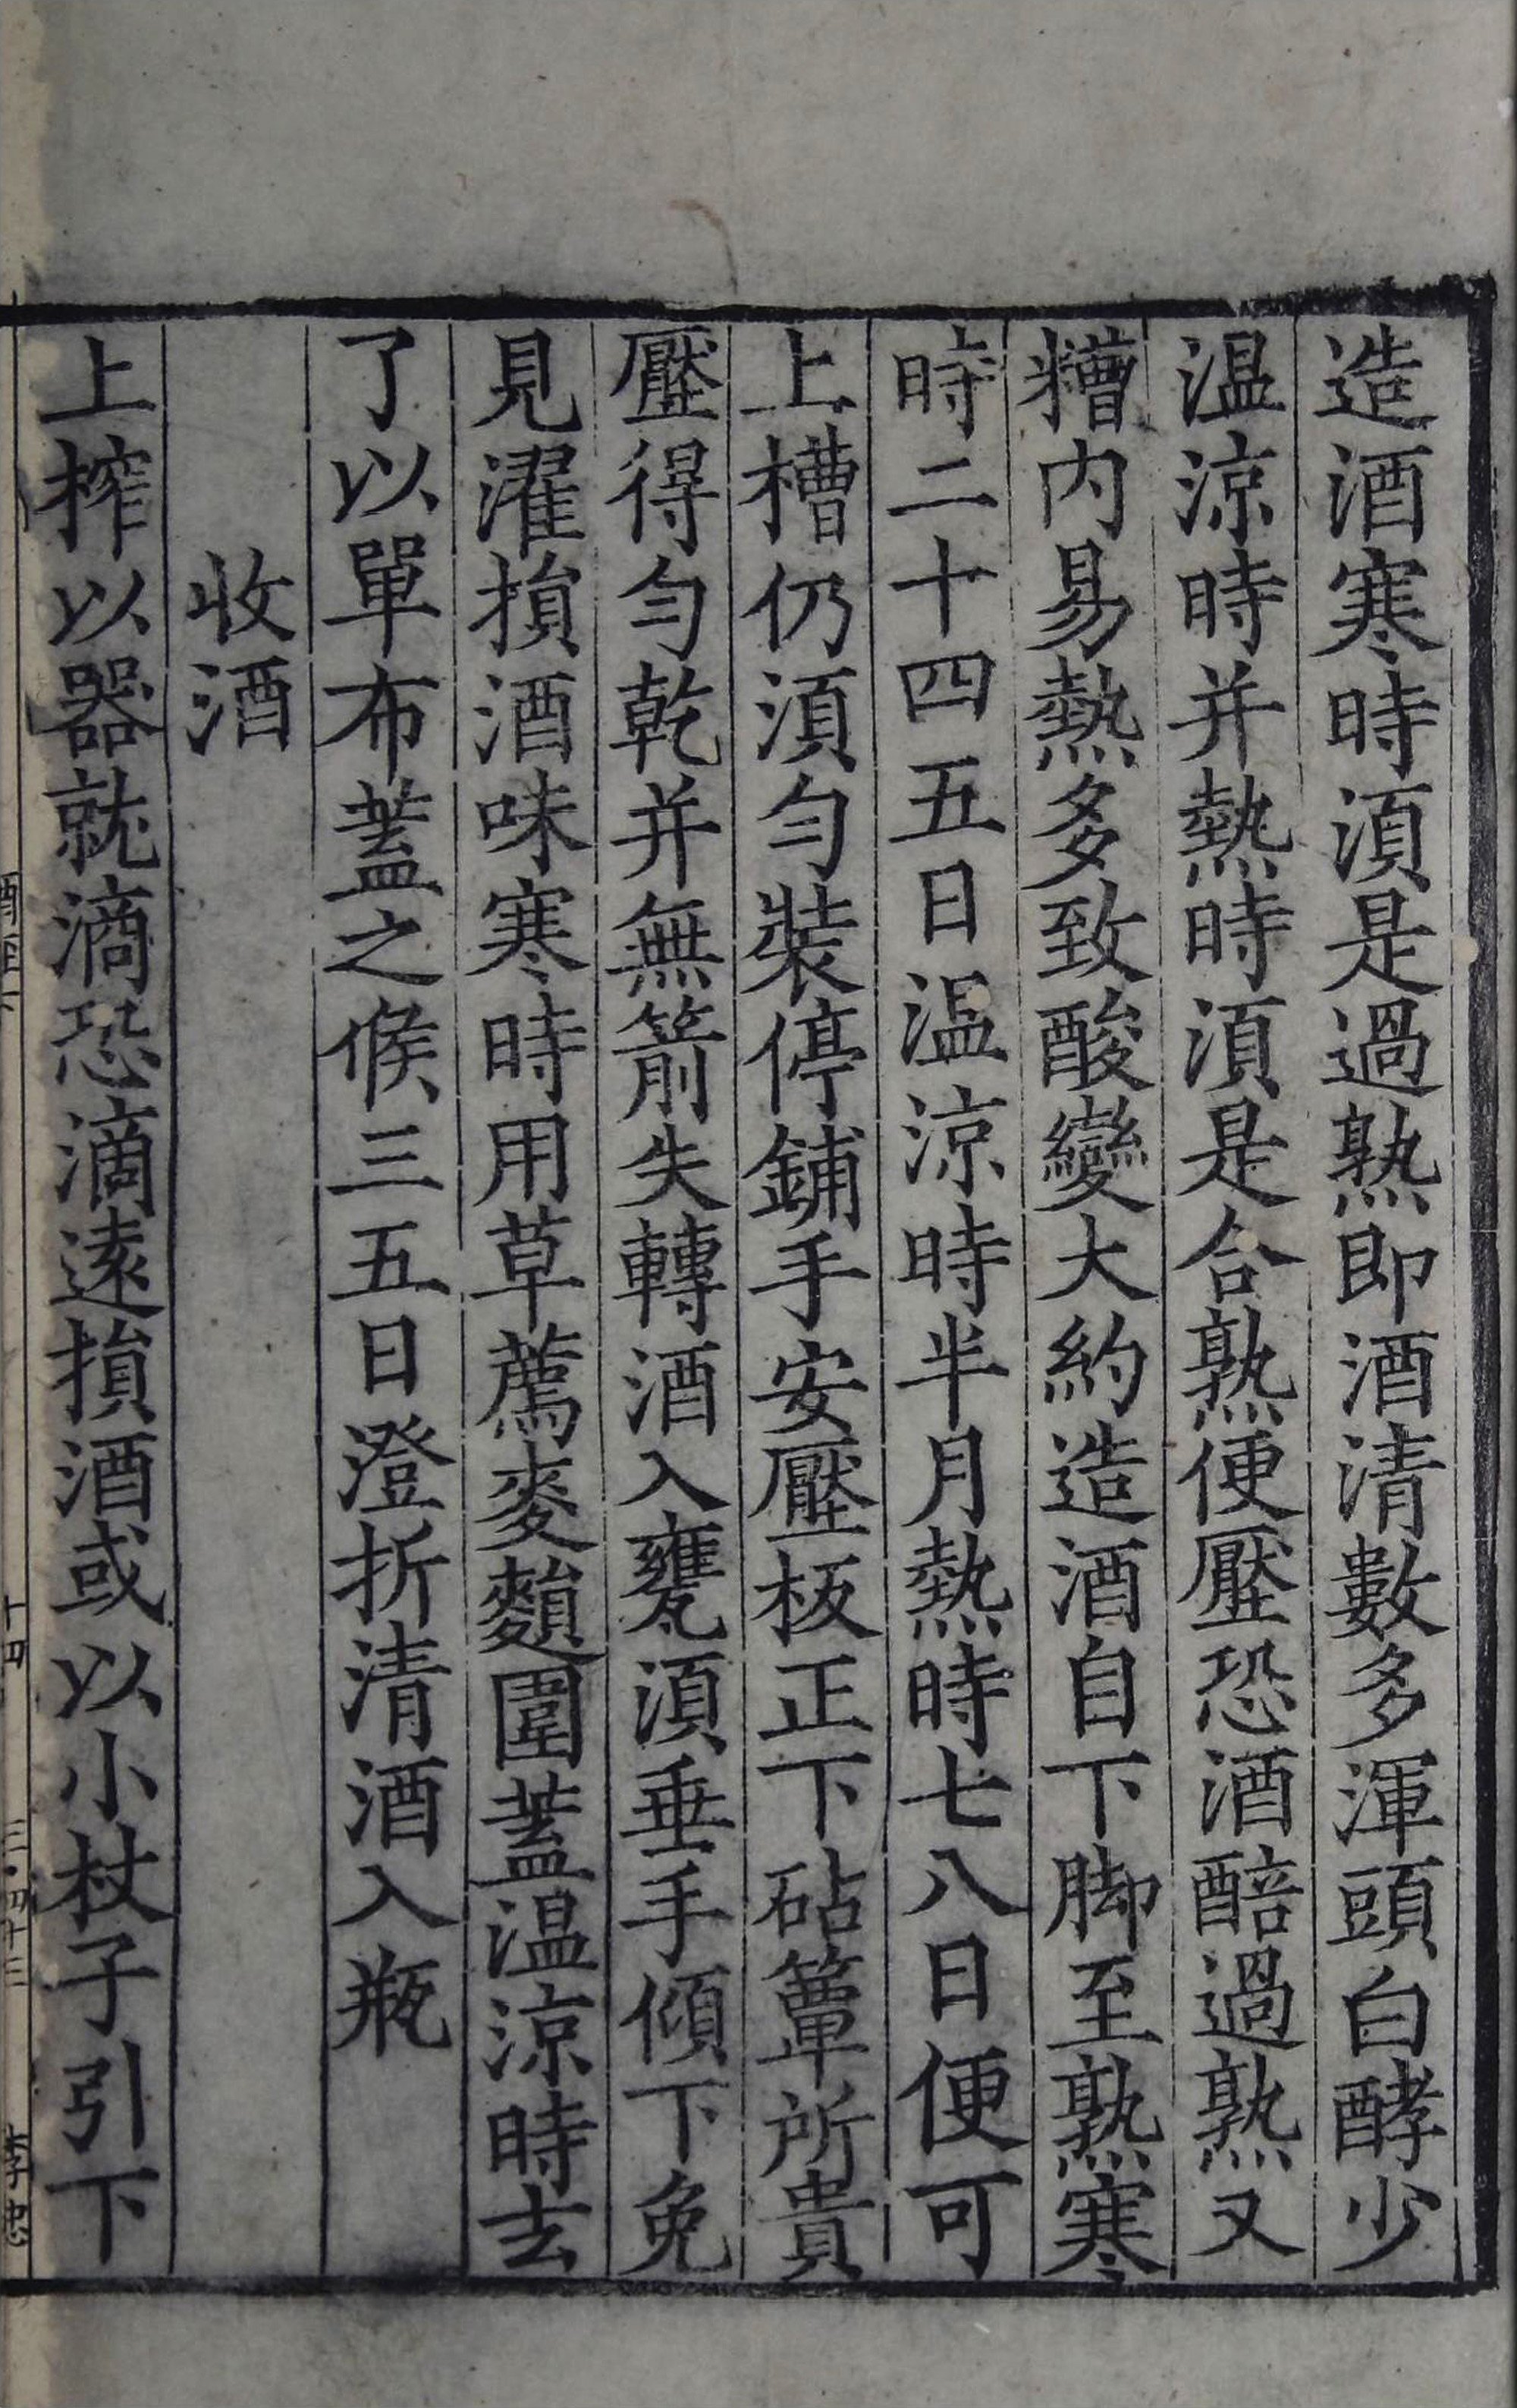 造酒寒時湏是過熟即酒清數多渾頭白酵少
温涼時并熱時湏是合熟便壓恐酒醅過熟又
糟内易熱多致酸變大約造酒自下脚至熟寒
時二十四五日温涼時半月熱時七八日便可
上槽仍湏勻裝停鋪手安壓板正下砧簟所貴
壓得勻乾并無箭失轉酒入甕湏垂手傾下免
見濯損酒味寒時用草薦麥䴷圍蓋温涼時去
了以單布蓋之候三五日澄折清酒入瓶
收酒
上榨以器就滴恐滴遠損酒或以小杖子引下
十四
三·四十三
李忠